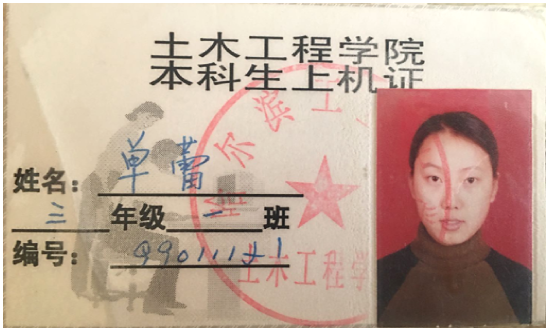 土木工程学院
本科生上机证
哈尔滨工
姓名：单蕾
三年级一班
编号：99011121
土木工程学